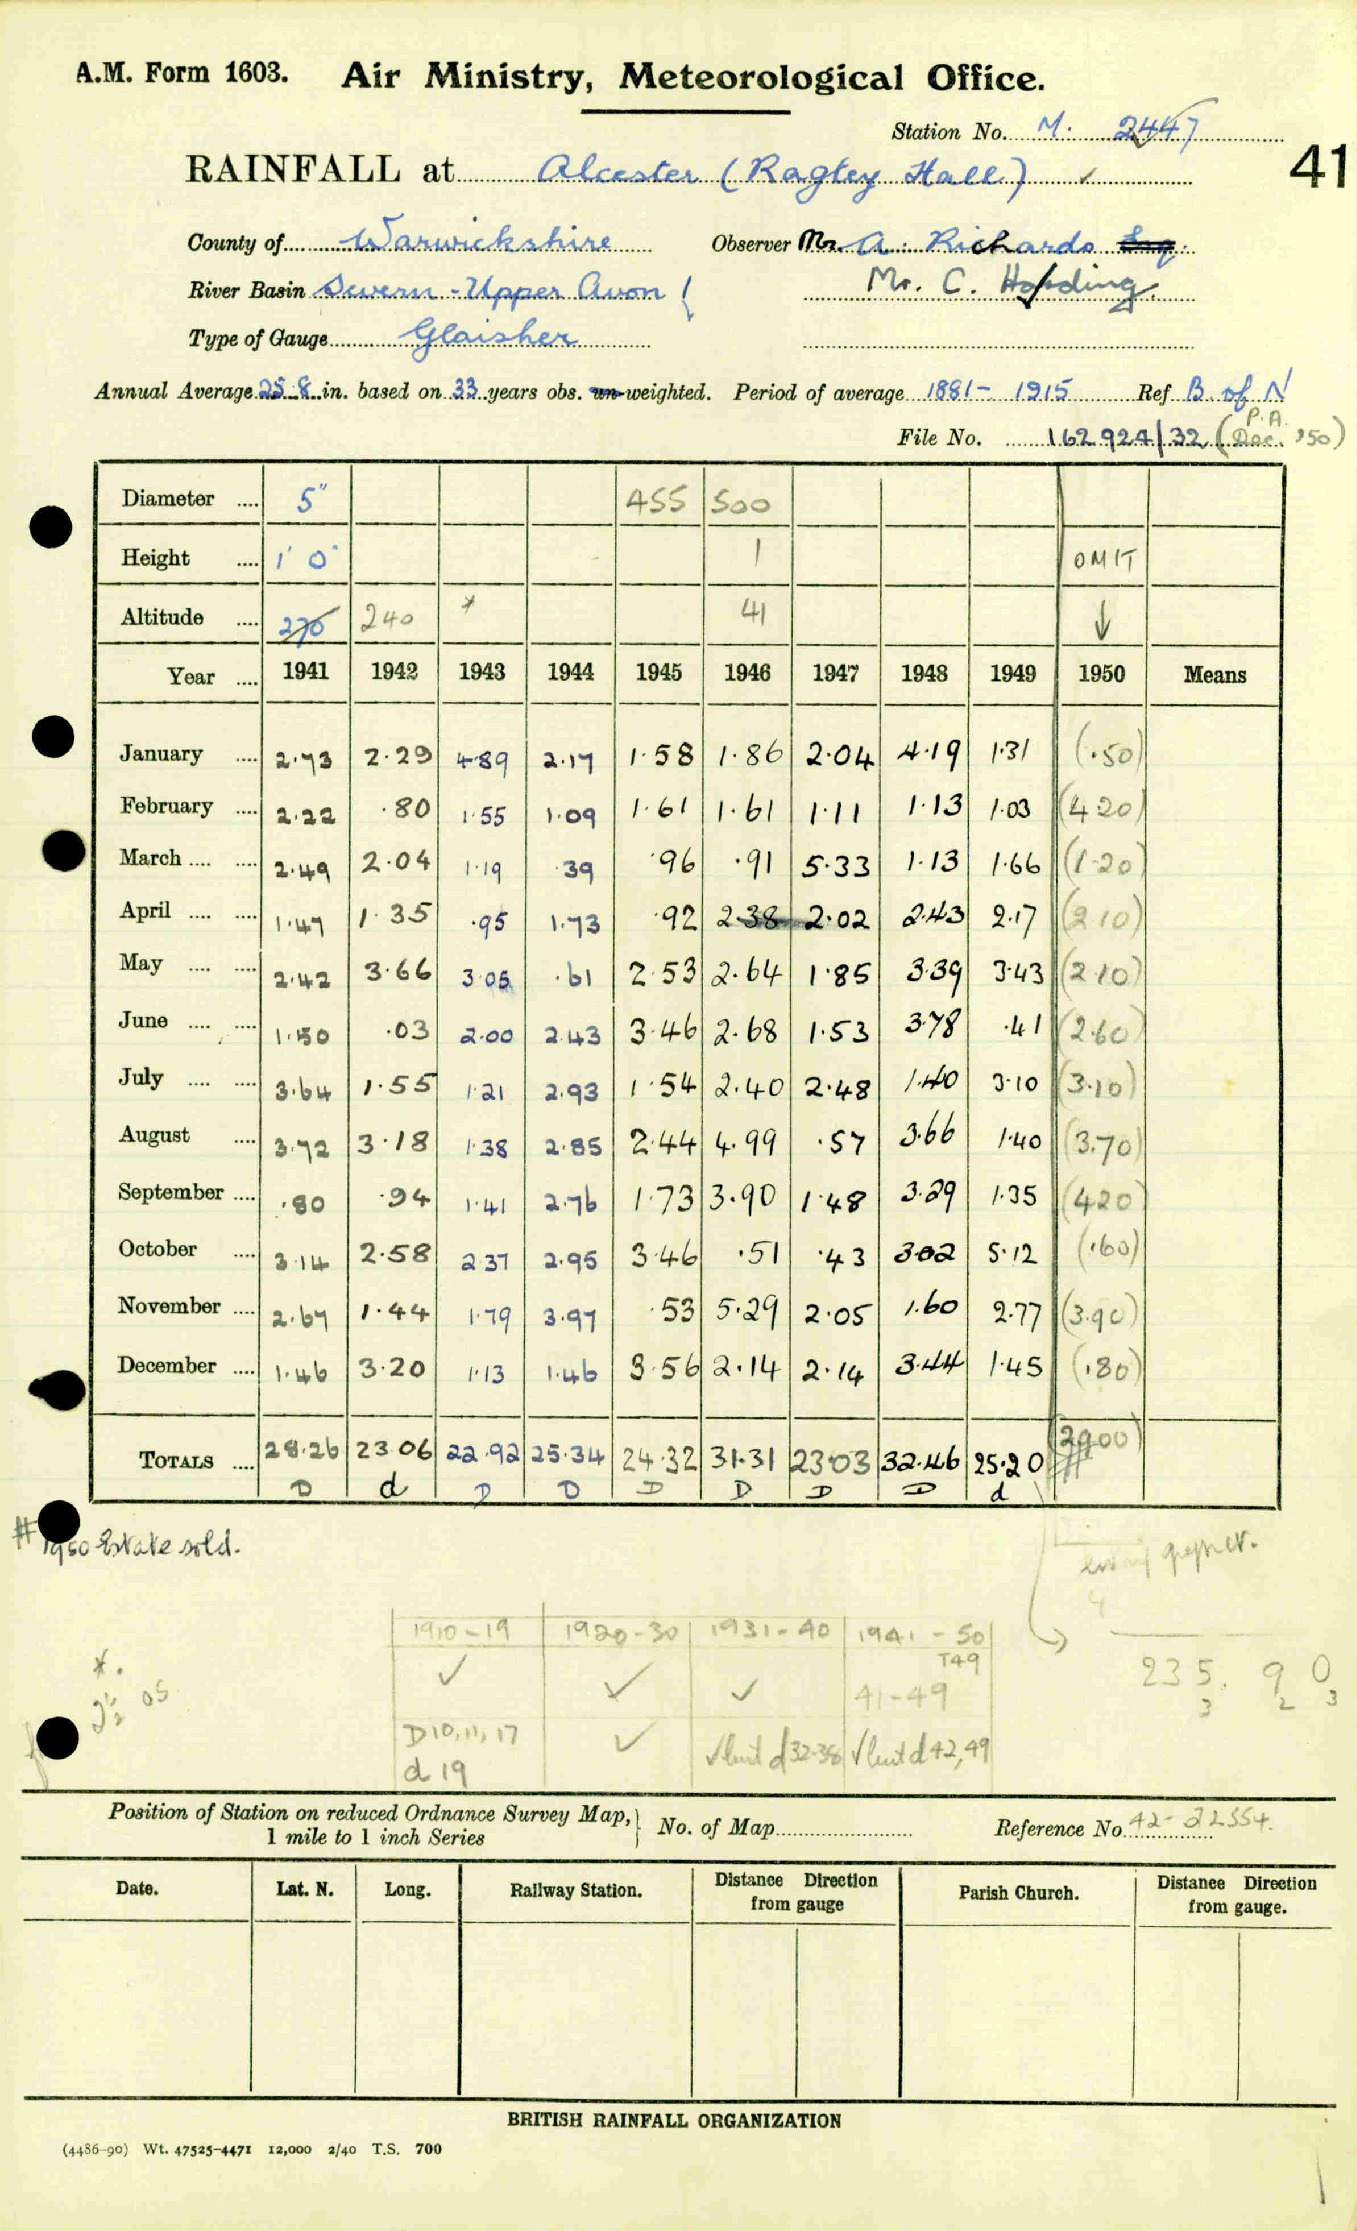 A.M. Form 1603. Air Ministry, Meteorological Office.
Station No. M. 2447
41
RAINFALL at Alcester (Ragley Hall) ✓
County of Warwickshire Observer Mr. A. Richards Esq.
River Basin Severn - Upper Avon Mr. C. Harding.
Type of Gauge Glaisher
Annual Average 25.8 in. based on 33 years obs. un-weighted. Period of average 1881 - 1915 Ref B. of N
P.A.
File No. 162924/32 (Dec. '50)
Diameter .... 5" 455 500
Height .... 1' 0" 1 OMIT
Altitude .... 270 240 * 41 ↓
Year .... 1941 1942 1943 1944 1945 1946 1947 1948 1949 1950 Means
January .... 2.73 2.29 4.89 2.17 1.58 1.86 2.04 4.19 1.31 (.50)
February .... 2.22 .80 1.55 1.09 1.61 1.61 1.11 1.13 1.03 (4.20)
March .... .... 2.49 2.04 1.19 .39 .96 .91 5.33 1.13 1.66 (1.20)
April .... .... 1.47 1.35 .95 1.73 .92 2.38 2.02 2.43 2.17 (2.10)
May .... .... 2.42 3.66 3.05 .61 2.53 2.64 1.85 3.39 3.43 (2.10)
June .... .... 1.50 .03 2.00 2.43 3.46 2.68 1.53 3.78 .41 (2.60)
July .... .... 3.64 1.55 1.21 2.93 1.54 2.40 2.48 1.40 3.10 (3.10)
August .... 3.72 3.18 1.38 2.85 2.44 4.99 .57 3.66 1.40 (3.70)
September .... .80 .94 1.41 2.76 1.73 3.90 1.48 3.29 1.35 (4.20)
October .... 3.14 2.58 2.37 2.95 3.46 .51 .43 3.02 5.12 (.60)
November .... 2.67 1.44 1.79 3.97 .53 5.29 2.05 1.60 2.77 (3.90)
December .... 1.46 3.20 1.13 1.46 3.56 2.14 2.14 3.44 1.45 (.80)
TOTALS .... 28.26 23.06 22.92 25.34 24.32 31.31 23.03 32.46 25.20 (29.00)
D d D D D D D D d #
# 1950 Estate sold.
1910-19 1920-30 1931-40 1941-50
T49
✓ ✓ ✓ 41-49
D10, 11, 17 ✓ ✓ but d 32-38 ✓ but d 42, 49
d 19
235. 9 0
3 2 3
Position of Station on reduced Ordnance Survey Map, } No. of Map Reference No. 42-22554.
1 mile to 1 inch Series
Date. Lat. N. Long. Railway Station. Distance Direction from gauge Parish Church. Distance Direction from gauge.
BRITISH RAINFALL ORGANIZATION
(4486-90) Wt. 47525-4471 12,000 2/40 T.S. 700